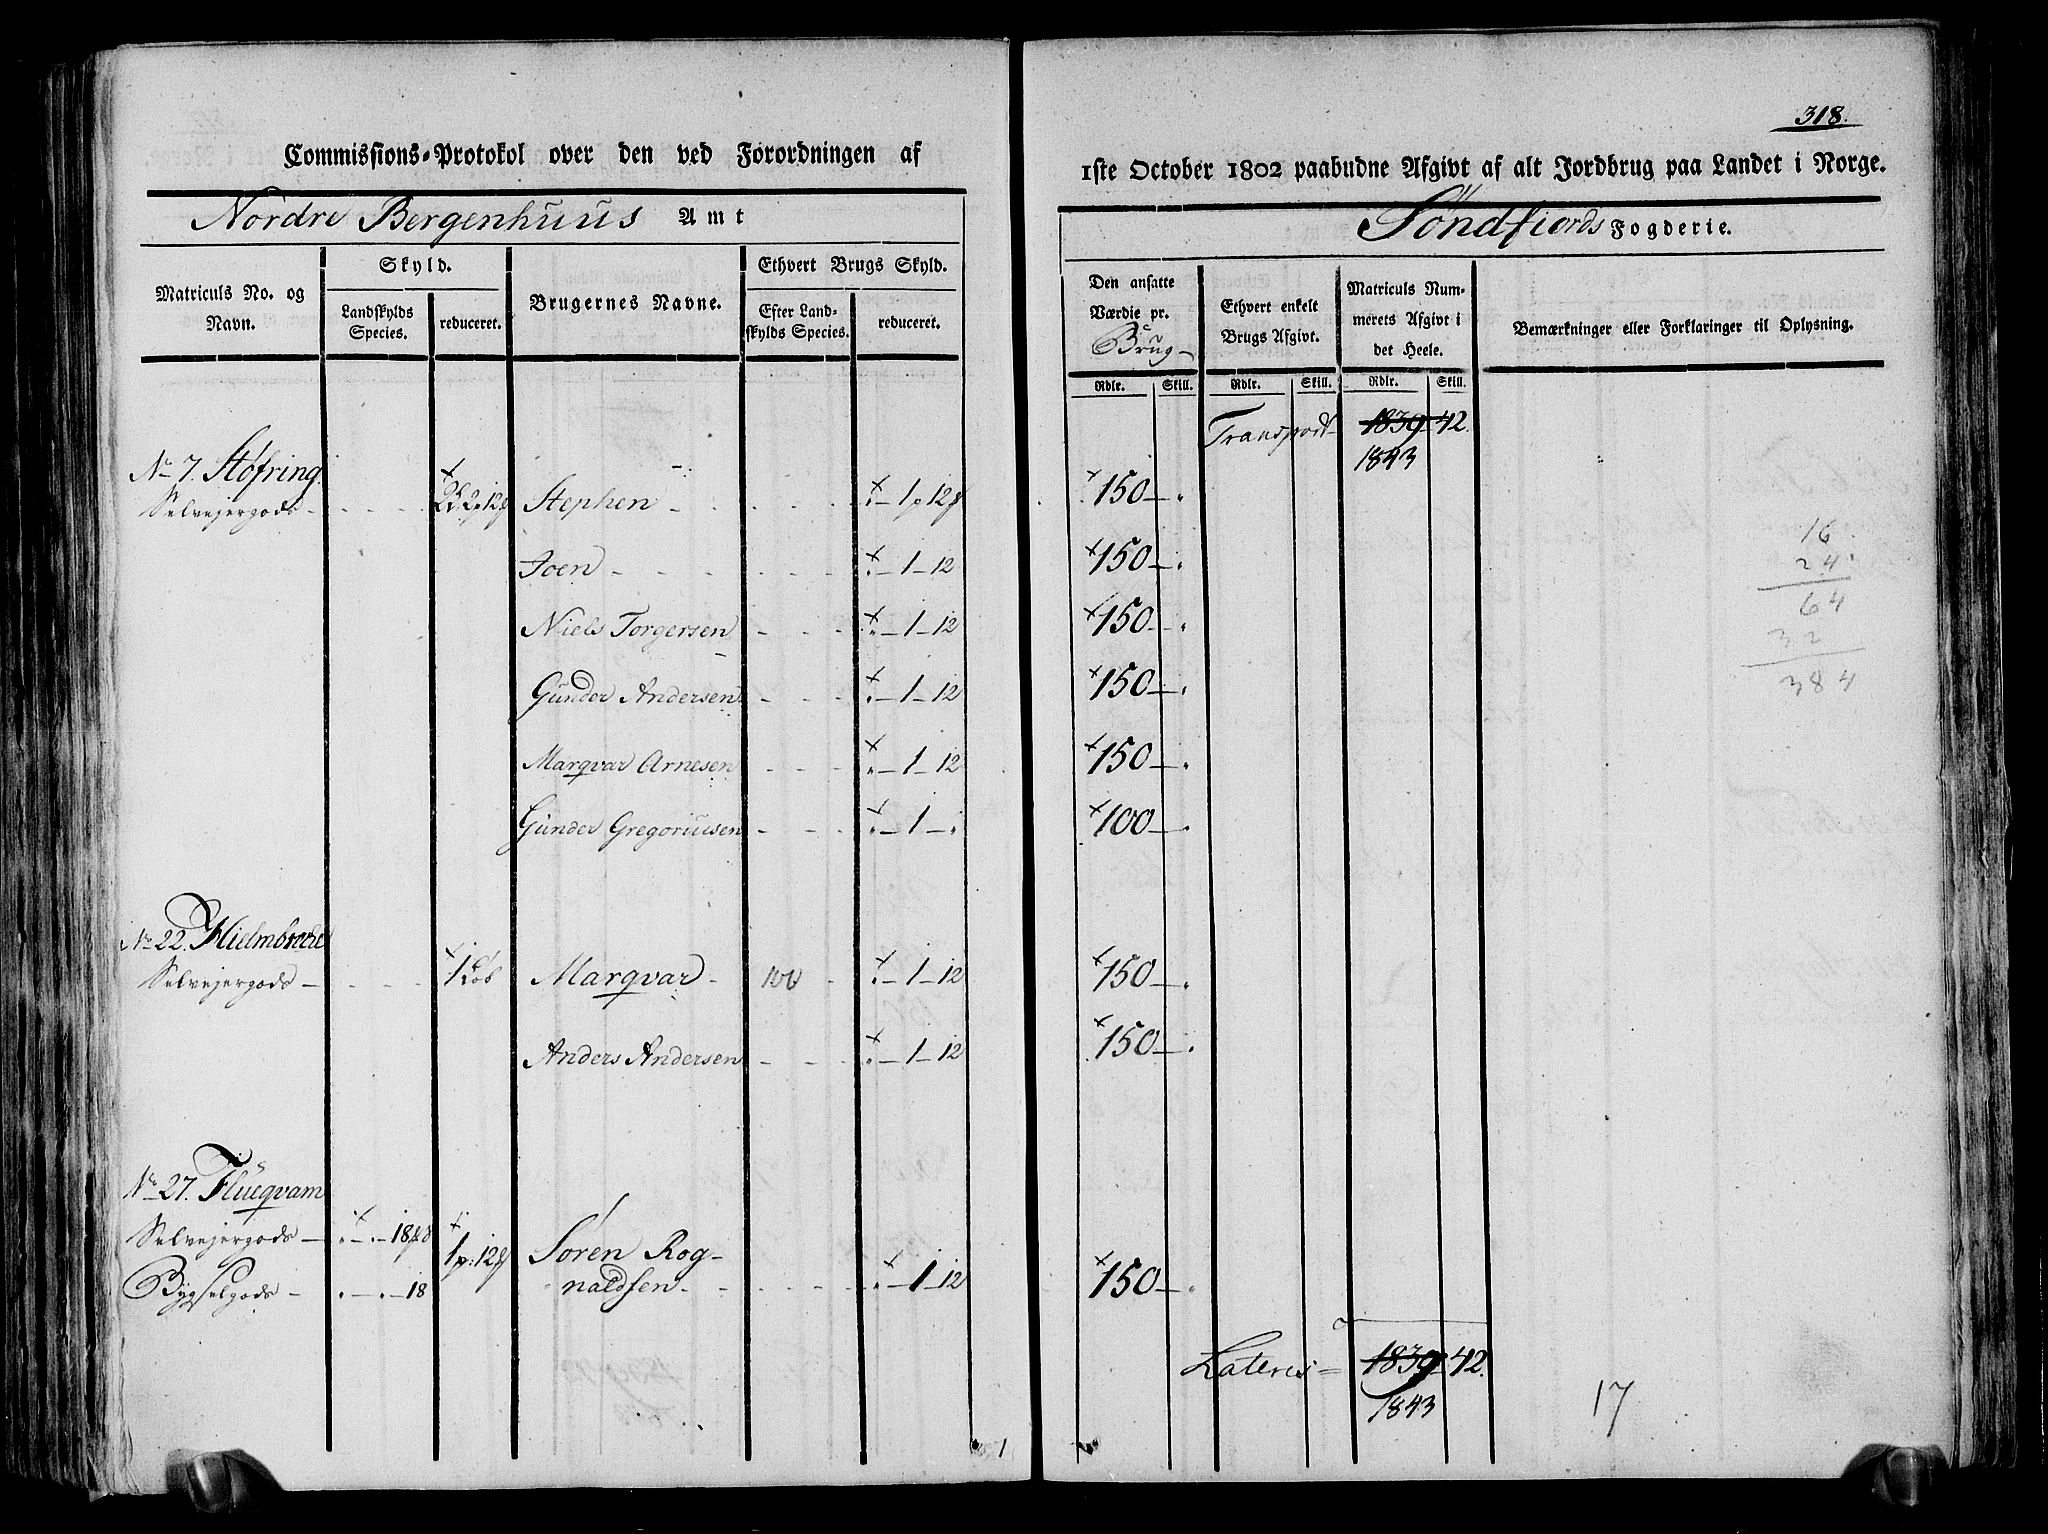 318.
Commissions-Protokol over den ved Forordningen af
1ste October 1802 paabudne Afgivt af alt Jordbrug paa Landet i Norge.
Nordre Bergenhuus Amt
Søndfiords Fogderie.
Matriculs No. og Navn.
Skyld.
Landskylds Species.
reduceret.
Brugernes Navne.
Ethvert Brugs Skyld.
Efter Landskylds Species.
reduceret.
Den ansatte Værdie pr. Brug
Ethvert enkelt Brugs Afgivt.
Matriculs Nummerets Afgivt i det Heele.
Bemærkninger eller Forklaringer til Oplysning.
Rdlr. Skill. Rdlr. Skill. Rdlr. Skill.
Transport 1839 42.
1843
No 7. Støfring
Selvejergods Stephen 1 p 12 150
Joen 1 12 150
Niels Torgersen 1 12 150
Gunder Andersen 1 12 150
Marqvar Arnesen 1 12 150
Gunder Gregoriusen 1 100
16
24
64
32
384
No 22. Hielmbrede
Selvejergods 1 Løb Marqvar 1 12 150
Anders Andersen 1 12 150
No 27. Flueqvam
Selvejergods 18 1 p: 12 Søren Rog-
Bygselgods 18 naldsen 1 12 150
Lateris 1839 42.
1843
17